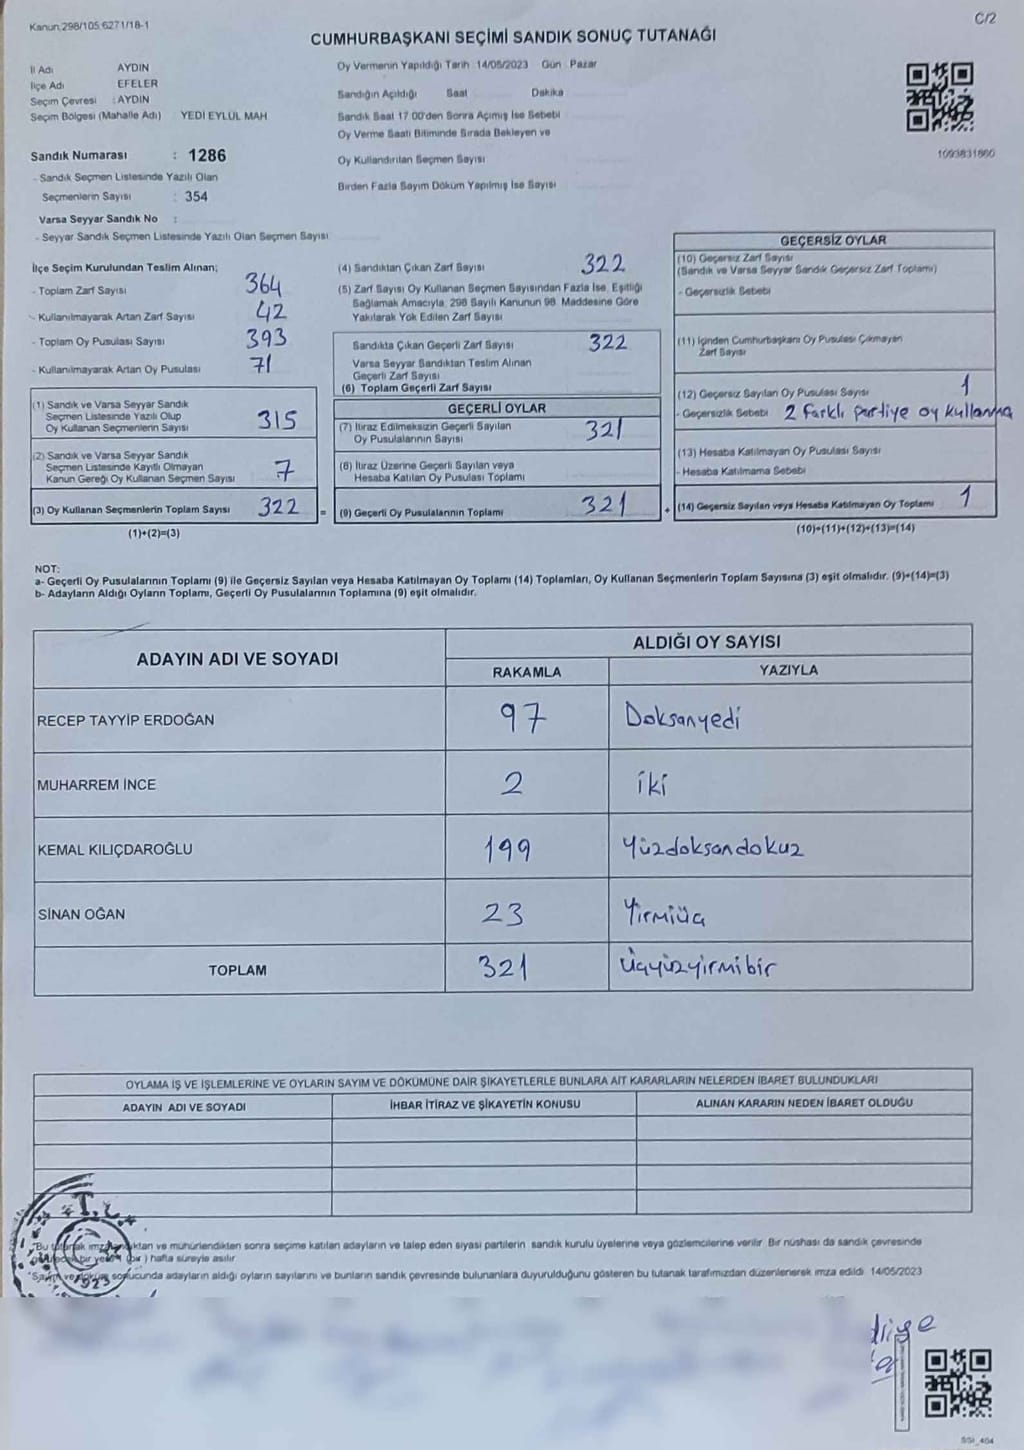 Kanun:298/105;6271/18-1
C/2
CUMHURBAŞKANI SEÇİMİ SANDIK SONUÇ TUTANAĞI
İl Adı : AYDIN
İlçe Adı : EFELER
Seçim Çevresi : AYDIN
Seçim Bölgesi (Mahalle Adı) : YEDİ EYLÜL MAH
Sandık Numarası : 1286
- Sandık Seçmen Listesinde Yazılı Olan
Seçmenlerin Sayısı : 354
Varsa Seyyar Sandık No :
- Seyyar Sandık Seçmen Listesinde Yazılı Olan Seçmen Sayısı
Oy Vermenin Yapıldığı Tarih :14/05/2023 Gün : Pazar
Sandığın Açıldığı Saat Dakika
Sandık Saat 17:00'den Sonra Açımış İse Sebebi
Oy Verme Saati Bitiminde Sırada Bekleyen ve
Oy Kullandırılan Seçmen Sayısı
Birden Fazla Sayım Döküm Yapılmış İse Sayısı
1093831860
İlçe Seçim Kurulundan Teslim Alınan;
- Toplam Zarf Sayısı 364
- Kullanılmayarak Artan Zarf Sayısı 42
- Toplam Oy Pusulası Sayısı 393
- Kullanılmayarak Artan Oy Pusulası 71
(1) Sandık ve Varsa Seyyar Sandık
Seçmen Listesinde Yazılı Olup
Oy Kullanan Seçmenlerin Sayısı 315
(2) Sandık ve Varsa Seyyar Sandık
Seçmen Listesinde Kayıtlı Olmayan
Kanun Gereği Oy Kullanan Seçmen Sayısı 7
(3) Oy Kullanan Seçmenlerin Toplam Sayısı 322 =
(1)+(2)=(3)
(4) Sandıktan Çıkan Zarf Sayısı 322
(5) Zarf Sayısı Oy Kullanan Seçmen Sayısından Fazla İse, Eşitliği
Sağlamak Amacıyla, 298 Sayılı Kanunun 98. Maddesine Göre
Yakılarak Yok Edilen Zarf Sayısı
Sandıkta Çıkan Geçerli Zarf Sayısı 322
Varsa Seyyar Sandıktan Teslim Alınan
Geçerli Zarf Sayısı
(6) Toplam Geçerli Zarf Sayısı
GEÇERLİ OYLAR
(7) İtiraz Edilmeksizin Geçerli Sayılan
Oy Pusulalarının Sayısı 321
(8) İtiraz Üzerine Geçerli Sayılan veya
Hesaba Katılan Oy Pusulası Toplamı
(9) Geçerli Oy Pusulalarının Toplamı 321 +
GEÇERSİZ OYLAR
(10) Geçersiz Zarf Sayısı
(Sandık ve Varsa Seyyar Sandık Geçersiz Zarf Toplamı)
- Geçersizlik Sebebi
(11) İçinden Cumhurbaşkanı Oy Pusulası Çıkmayan
Zarf Sayısı
(12) Geçersiz Sayılan Oy Pusulası Sayısı 1
- Geçersizlik Sebebi 2 farklı partiye oy kullanma
(13) Hesaba Katılmayan Oy Pusulası Sayısı
- Hesaba Katılmama Sebebi
(14) Geçersiz Sayılan veya Hesaba Katılmayan Oy Toplamı 1
(10)+(11)+(12)+(13)=(14)
NOT:
a- Geçerli Oy Pusulalarının Toplamı (9) ile Geçersiz Sayılan veya Hesaba Katılmayan Oy Toplamı (14) Toplamları, Oy Kullanan Seçmenlerin Toplam Sayısına (3) eşit olmalıdır. (9)+(14)=(3)
b- Adayların Aldığı Oyların Toplamı, Geçerli Oy Pusulalarının Toplamına (9) eşit olmalıdır.
ADAYIN ADI VE SOYADI
ALDIĞI OY SAYISI
RAKAMLA YAZIYLA
RECEP TAYYİP ERDOĞAN 97 Doksanyedi
MUHARREM İNCE 2 iki
KEMAL KILIÇDAROĞLU 199 Yüzdoksandokuz
SİNAN OĞAN 23 Yirmiüç
TOPLAM 321 Üçyüzyirmibir
OYLAMA İŞ VE İŞLEMLERİNE VE OYLARIN SAYIM VE DÖKÜMÜNE DAİR ŞİKAYETLERLE BUNLARA AİT KARARLARIN NELERDEN İBARET BULUNDUKLARI
ADAYIN ADI VE SOYADI İHBAR İTİRAZ VE ŞİKAYETİN KONUSU ALINAN KARARIN NEDEN İBARET OLDUĞU
T.C.
*Bu tutanak imzalandıktan ve mühürlendikten sonra seçime katılan adayların ve talep eden siyasi partilerin sandık kurulu üyelerine veya gözlemcilerine verilir. Bir nüshası da sandık çevresinde
bir yere 1 (bir) hafta süreyle asılır.
*Sayım ve döküm sonucunda adayların aldığı oyların sayılarını ve bunların sandık çevresinde bulunanlara duyurulduğunu gösteren bu tutanak tarafımızdan düzenlenerek imza edildi. 14/05/2023
923
SSI_404